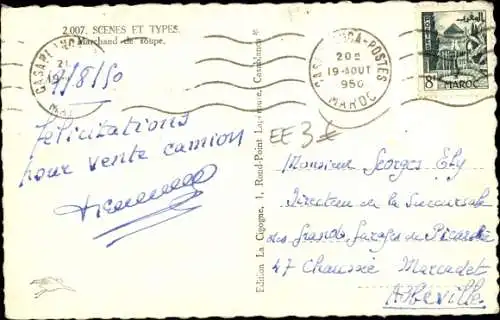 2.007. SCENES ET TYPES
Marchand de soupe.
CASABLANCA
9/8/50
Félicitations
pour vente camion
Edition La Cigogne, 1, Rond-Point Lapérouse, Casablanca
CASABLANCA-POSTES
20H
19-AOUT
1950
MAROC
8F
MAROC
EE 3€
Monsieur Georges Ely
Directeur de la Succursale
des Grands Garages de Picardie
47 Chaussée Marcadet
Abbeville